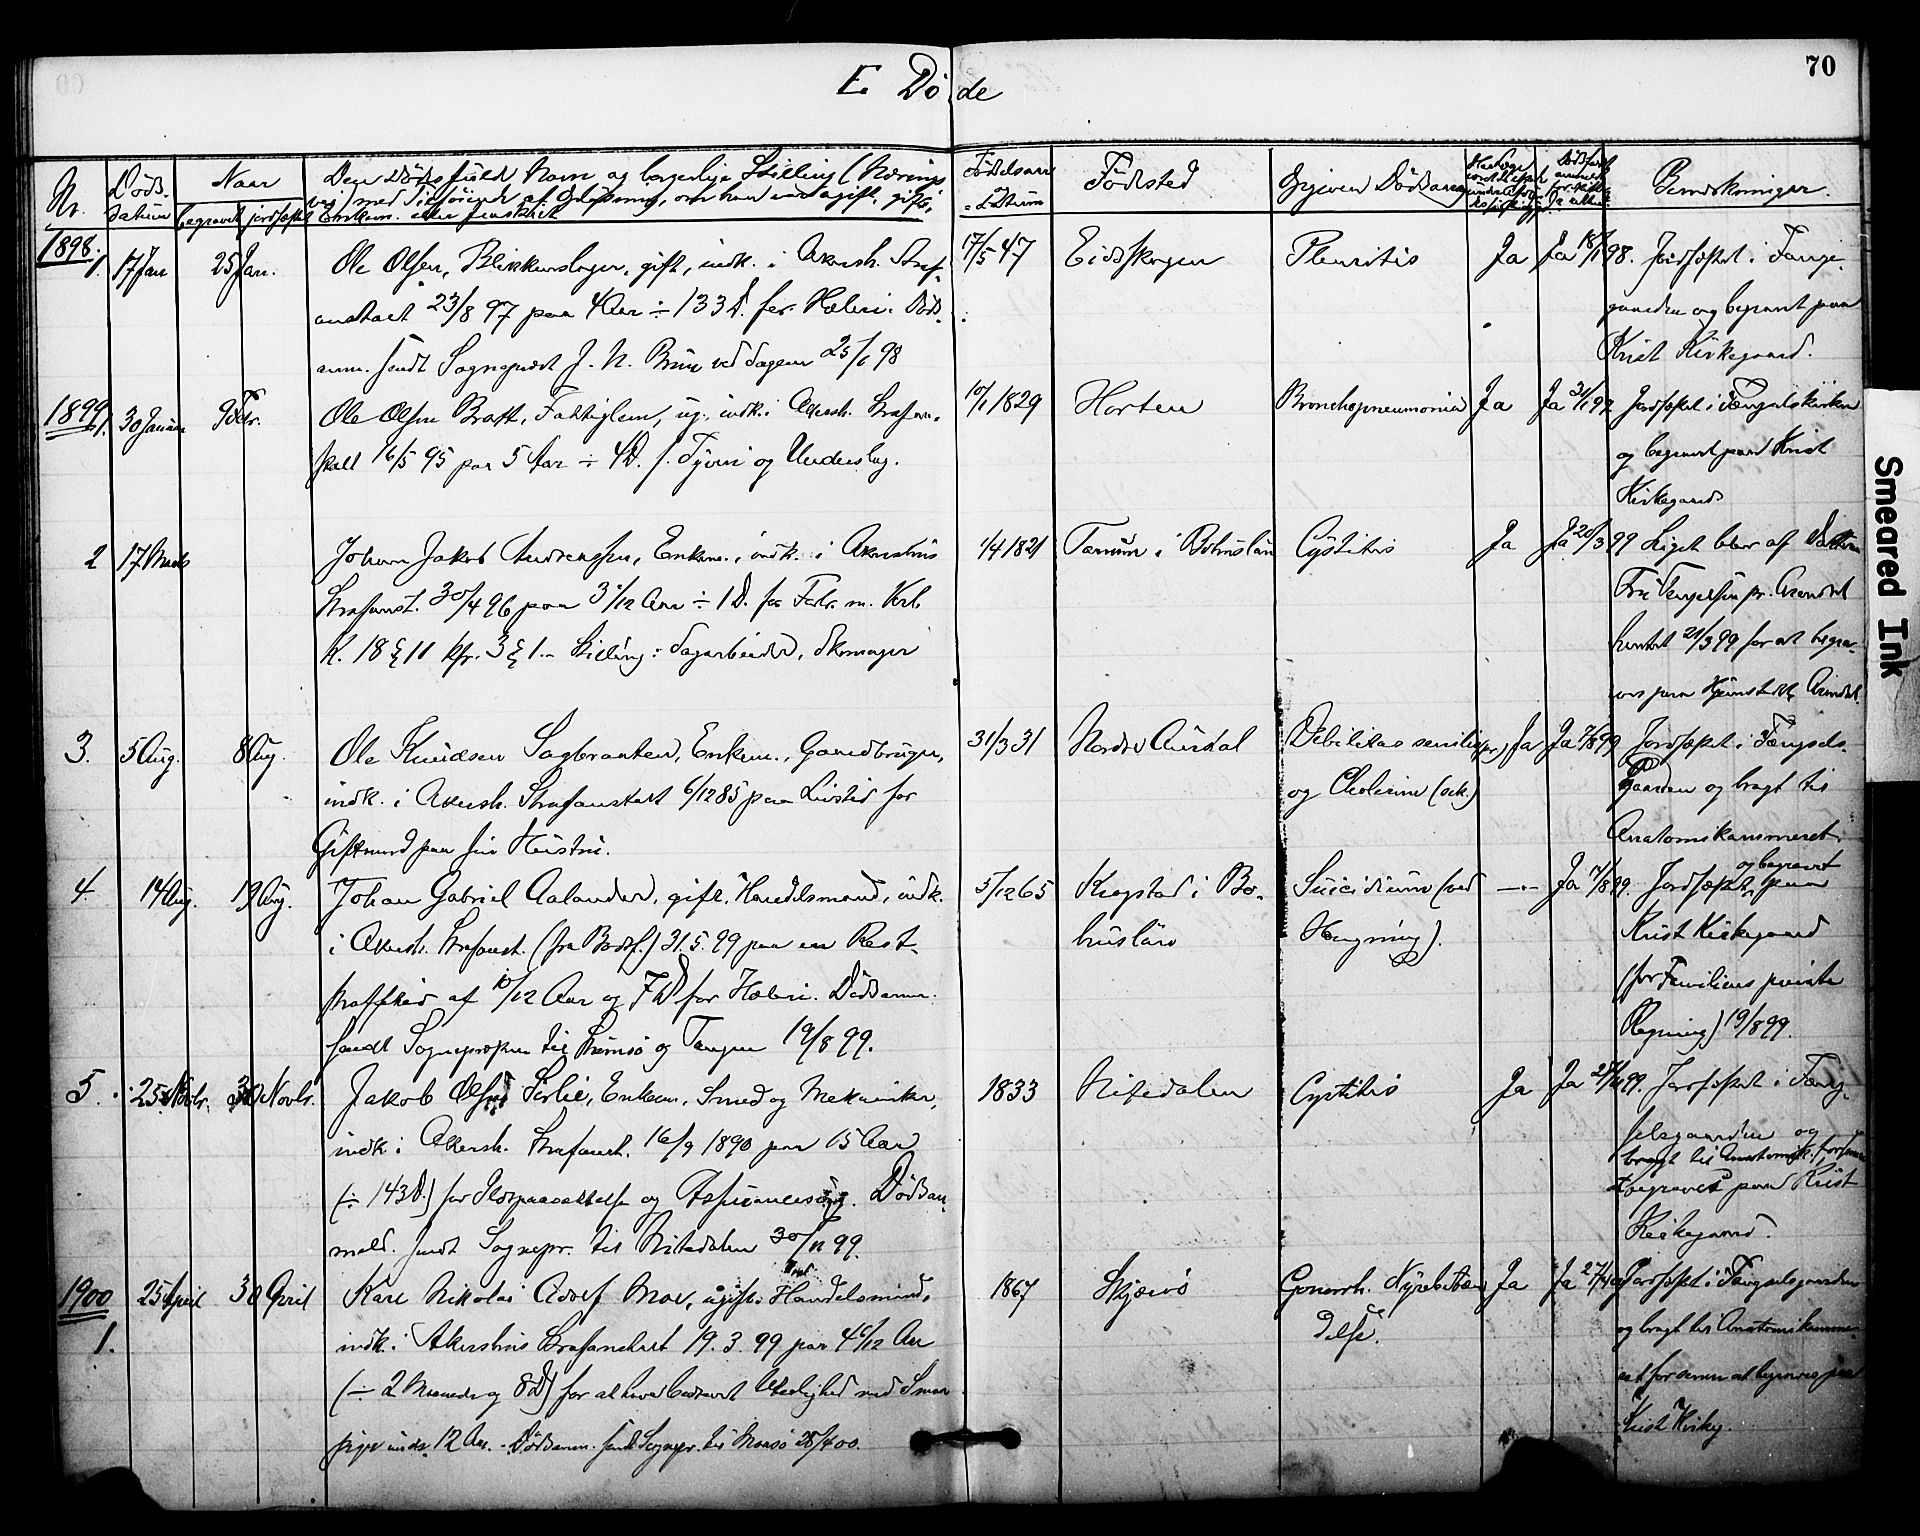 E. Døde
70
Nr.
Døds-
datum
Naar
begravet jordfæstet
Den Dødes fulde Navn og borgerlige Stilling (Nærings
vei) med Tilføiende af Oplysning, om han var ugift, gift,
Enkem. eller fraskilt
Fødselsaar
-Datum
Fødested
Opgiven Dødsaarsag
Bemærkninger.
Smeared Ink
1898.
1. 17 Jan 25 Jan. Ole Olsen, Blikkenslager, gift, indk. i Akersh. Straf- 17/5 47 Eidskogen Pleuritis Ja Ja 18/1 98. Jordfæstet i Fænge-
anstalt 23/8 97 paa 4 Aar ÷ 133 D. for Hæleri. Døds- gaarden og begravet paa
anm. sendt Sogneprest J. N. Brun ved dagen 25/1 98 Krist Kirkegaard.
1899
1. 30 Januar 9 Febr. Ole Olsen Bratt, Fattiglem, ug. indk. i Akersh. Strafan- 10/1 1829 Horten Bronchopneumonia Ja Ja 31/1 99 Jordfæstet i Fængselskirken
stalt 16/5 95 paa 5 Aar ÷ 4 D. f. Tyveri og Underslag. og begravet paa Krist
Kirkegaard
2 17 Marts Johan Jakob Andreassen, Enkem., indk. i Akershus 1/4 1821 Tanum i Bohuslän Cystitis Ja Ja 20/3 99 Liget blev af Datteren
Strafanst. 30/4 96 paa 3 /12 Aar ÷ 1 D. for Forbr. m. Krl. Fru Tengelsen pr. Arendal
K. 18 § 11 kfr. 3 § 1. - Stilling: Dagarbeider, Skomager hentet 21/3 99 for at begra-
ves paa Hjemstedet, Arendal.
3. 5 Aug. 8 Aug. Ole Knudsen Sagbraaten, Enkem., Gaardbruger, 31/3 31 Nordre Aurdal Debilitas senilis (pr) Ja Ja 7/8 99 Jordfæstet i Fængsels-
indk. i Akersh. Strafanstalt 6/12 85 paa Livstid for og Cholerine (sek.) Gaarden og bragt til
Giftmord paa sin Hustru. Anatomikammeret.
4. 14 Aug. 19 Aug. Johan Gabriel Aalander, gift, Handelsmand, indk. 5/12 65 Krogstad i Bo- Suicidium (ved —"— Ja 17/8 99. Jordfæstet og begravet paa
i Akersh. Strafanst. (fra Bodsf.) 31. 5. 99 paa en Rest- huslän Hængning). Krist Kirkegaard
straffetid af 10/12 Aar og 7 D. for Hæleri. Dødsanm. (for Familiens private
sendt Sognepresten til Strømsø og Tangen 19/8 99. Regning) 19/8 99.
5. 25 Novbr. 30 Novbr. Jakob Olsen Sørlie, Enkem., Smed og Mekaniker, 1833 Nitedalen Cystitis Ja Ja 27/11 99. Jordfæstet i Fæng-
indk. i Akersh. Strafanst. 16/9 1890 paa 15 Aar selsgaarden og
(÷ 143 D.) for Ildspaasættelse og Assurancesvig. Dødsan- bragt til Anatomik. for senere
meld. sendt Sognepr. til Nitedalen 30/11 99. at begraves paa Krist
Kirkegaard.
1900
1. 25 April 30 April Karl Nikolai Adolf Moe, ugift, Handelsmand, 1867 Skjærvø Gonorrh. Nyrebetæn- Ja Ja 27/4 00 Jordfæstet i Fængselsgaarden
indk. i Akershus Strafanstalt 19. 3. 99 paa 4 6/12 Aar delse. og bragt til Anatomikamme-
(÷ 2 Maaneder og 8 D) for at have bedrevet Uterlighed med Smaa- ret for senere at begraves paa
piger under 12 Aar. - Dødsanm. sendt Sognepr. til 28/4 00. Krist Kirkeg.